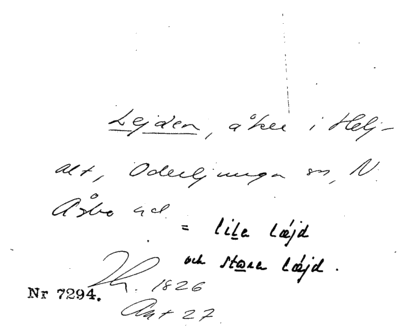 Lejden, åker i Helj-
alt, Oderljunga sn, N.
Åsbo hd.
= lila læjd
och stora læjd.
1826
Nr 7294.
Akt 27